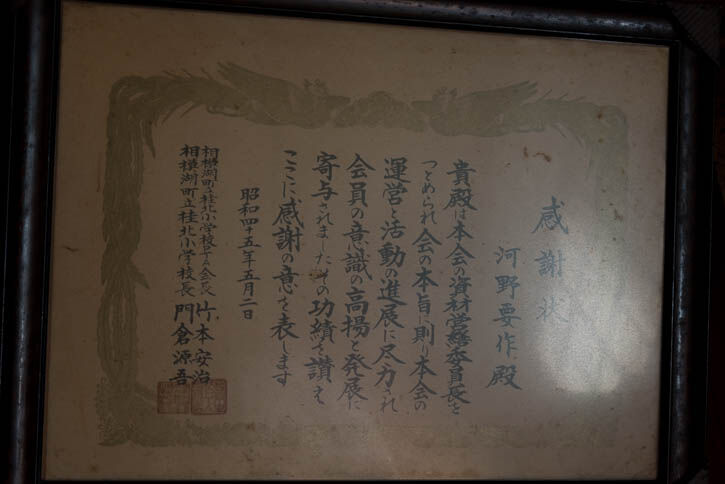 感謝状
河野要作殿
貴殿は本会の資材営繕委員長を
つとめられ会の本旨に則り本会の
運営と活動の進展に尽力され
会員の意識の高揚と発展に
寄与されましたその功績を讃え
ここに感謝の意を表します
昭和四十五年五月二日
相模湖町立桂北小学校PTA会長 本安治
相模湖町立桂北小学校長 門倉源吾